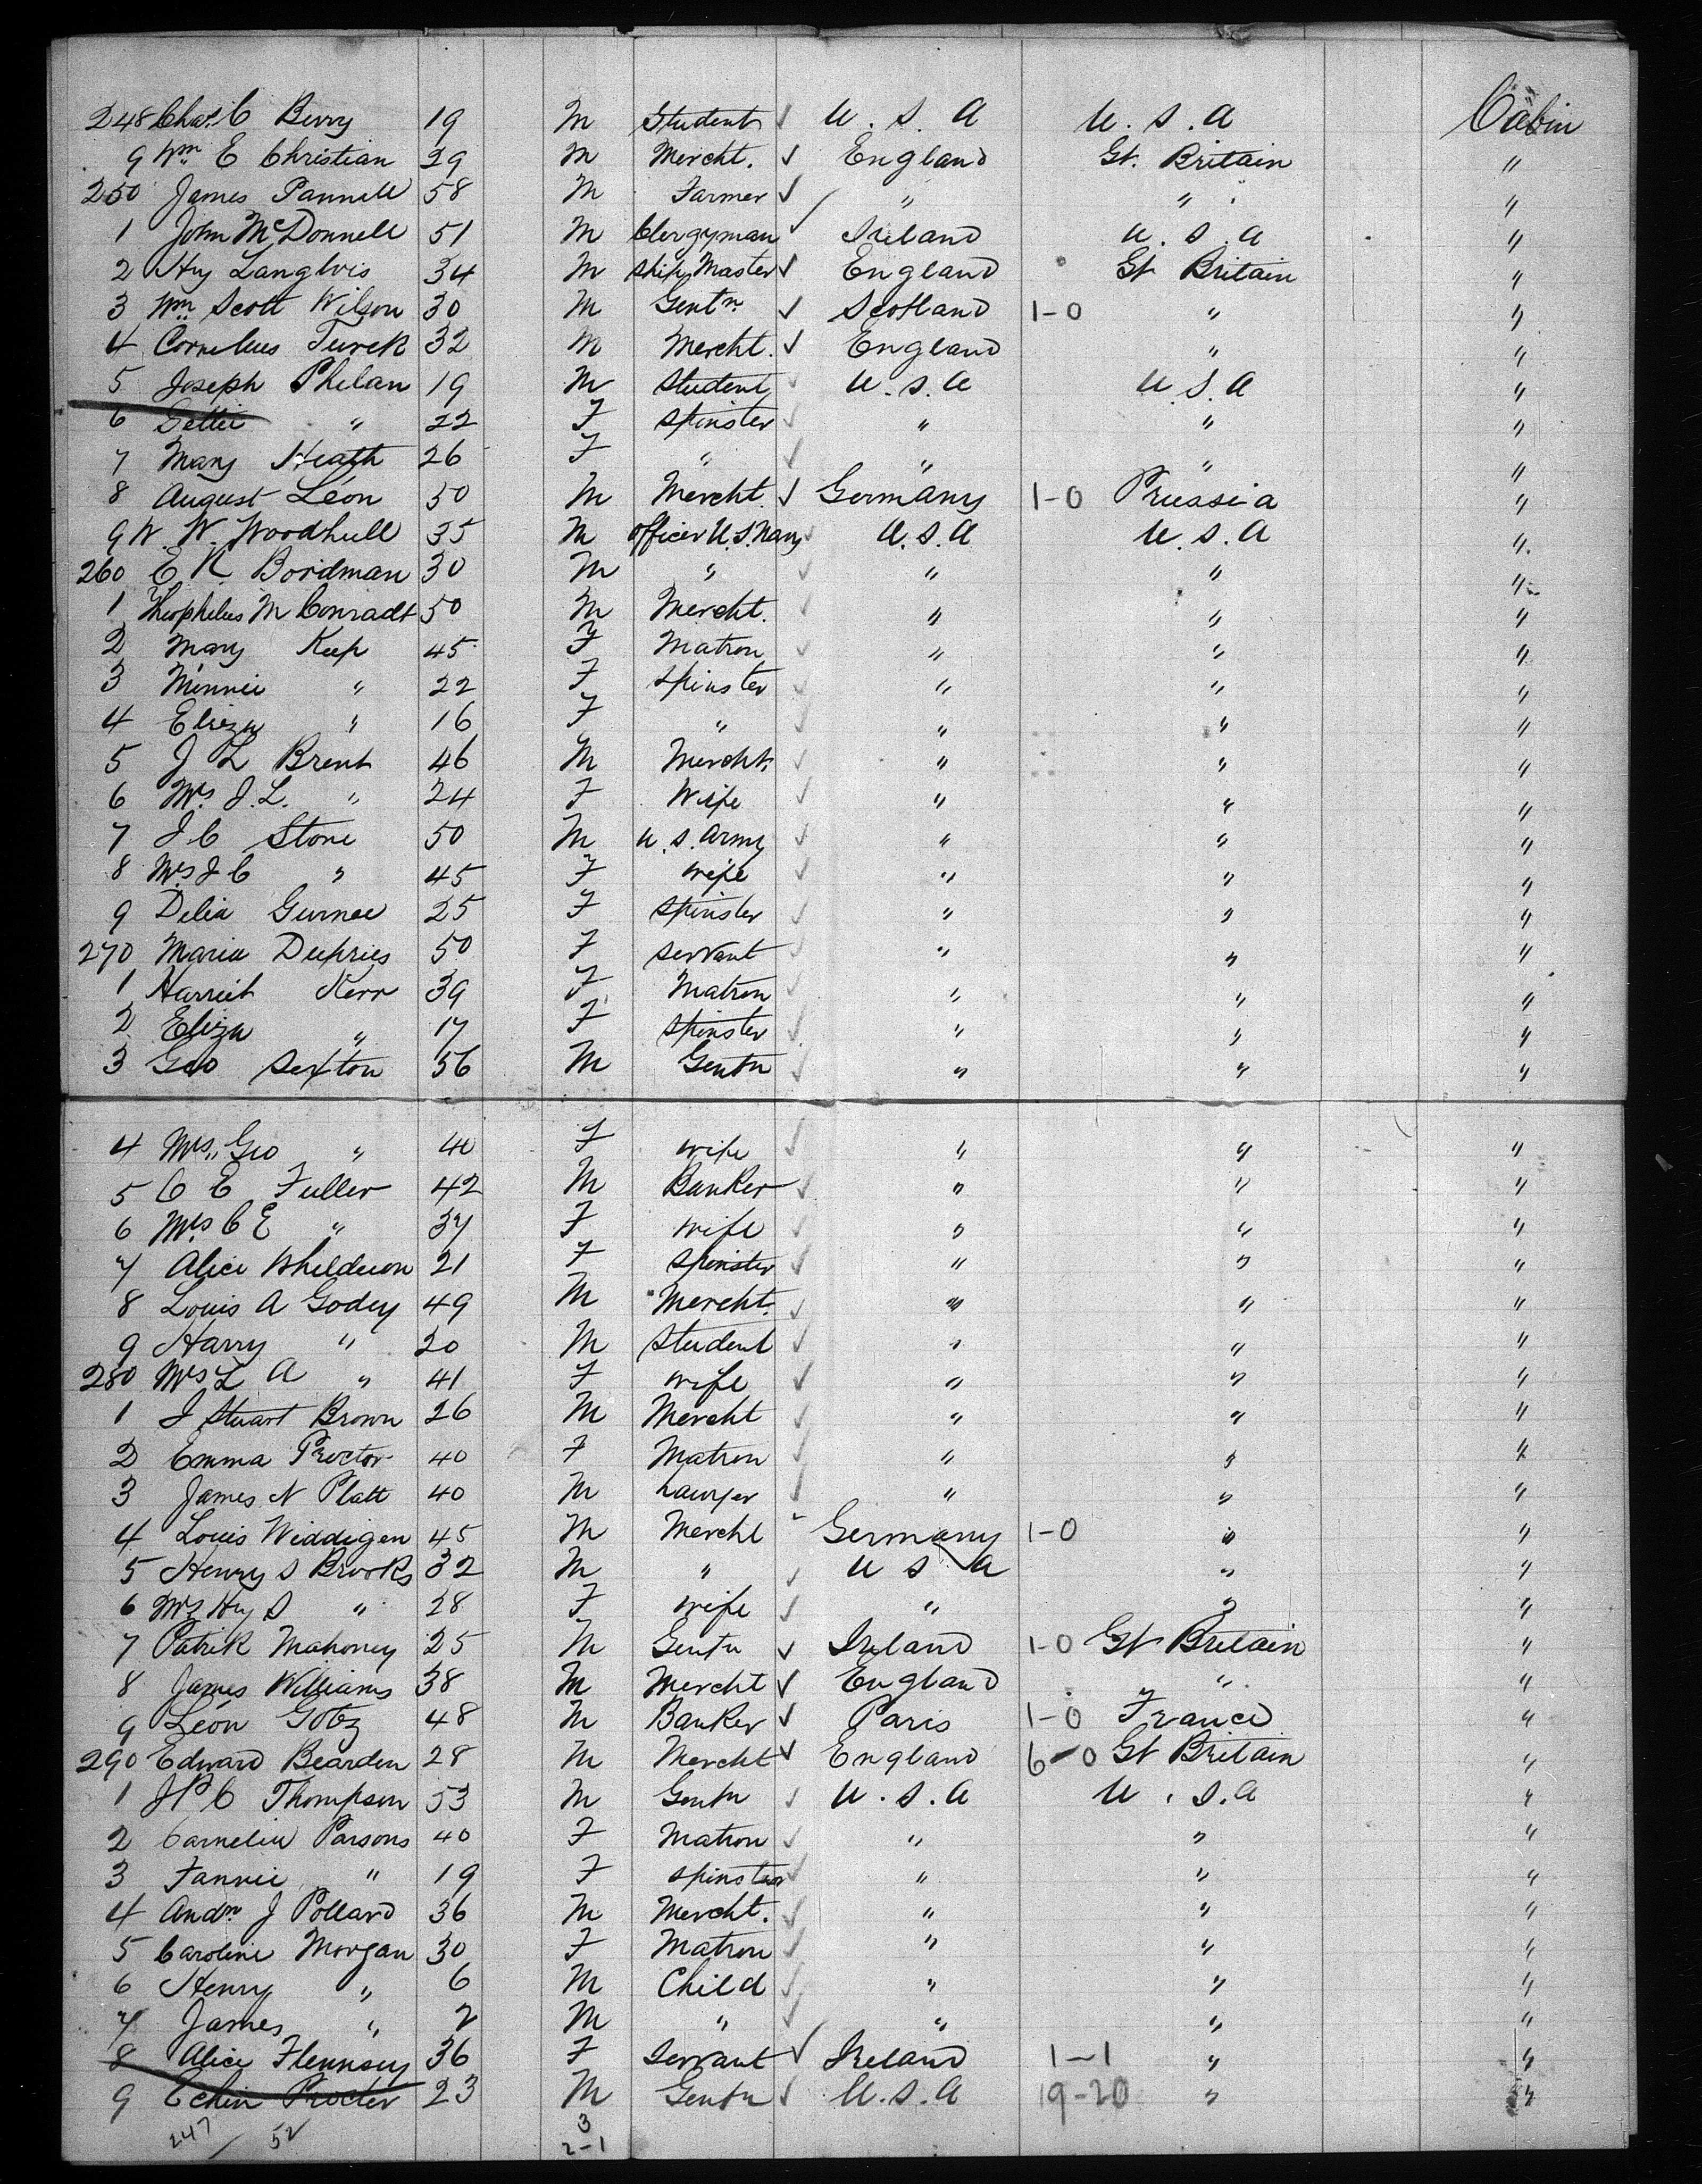 248 Chas. C Berry 19 M Student ✓ U.S.A U.S.A Cabin
9 Wm E Christian 29 M Mercht. ✓ England Gt. Britain "
250 James Pannell 58 M Farmer ✓ " " "
1 John McDonnell 51 M Clergyman ✓ Ireland U.S.A "
2 Hy Langlois 34 M Ship Master ✓ England Gt Britain "
3 Wm Scott Wilson 30 M Gentn. ✓ Scotland 1-0 " "
4 Cornelius Turck 32 M Mercht. ✓ England " "
5 Joseph Phelan 19 M Student ✓ U.S.A U.S.A "
6 " 22 F Spinster ✓ " " "
7 Mary Heath 26 F " ✓ " " "
8 August Léon 50 M Mercht. ✓ Germany 1-0 Prussia "
9 W. W. Woodhull 35 M Officer U.S. Navy ✓ U.S.A U.S.A "
260 E K Bordman 30 M " ✓ " " "
1 Theophelus M Conradt 50 M Mercht. ✓ " " "
2 Mary Keep 45 F Matron ✓ " " "
3 Minnie " 22 F Spinster ✓ " " "
4 Eliza " 16 F " ✓ " " "
5 J L Brent 46 M Mercht. ✓ " " "
6 Mrs. J.L. " 24 F Wife ✓ " " "
7 J C Stone 50 M U.S. Army ✓ " " "
8 Mrs J C " 45 F Wife ✓ " " "
9 Delia Gurnee 25 F Spinster ✓ " " "
270 Maria Dupries 50 F Servant ✓ " " "
1 Harriet Kerr 39 F Matron ✓ " " "
2 Eliza " 17 F Spinster ✓ " " "
3 Geo Sexton 56 M Gentn ✓ " " "
4 Mrs. Geo " 40 F Wife ✓ " " "
5 C E Fuller 42 M Banker ✓ " " "
6 Mrs C E " 37 F Wife ✓ " " "
7 Alice 21 F Spinster ✓ " " "
8 Louis A Godey 49 M Mercht. ✓ " " "
9 Harry " 20 M Student ✓ " " "
280 Mrs L A " 41 F Wife ✓ " " "
1 J Stuart Brown 26 M Mercht ✓ " " "
2 Emma Proctor 40 F Matron ✓ " " "
3 James N Platt 40 M Lawyer ✓ " " "
4 Louis Widdigen 45 M Mercht Germany 1-0 " "
5 Henry S Brooks 32 M " ✓ U S A " "
6 Mrs Hy S " 28 F Wife ✓ " " "
7 Patrik Mahoney 25 M Gentn ✓ Ireland 1-0 Gt Britain "
8 James Williams 38 M Mercht ✓ England " "
9 Léon Gotz 48 M Banker ✓ Paris 1-0 France "
290 Edward Bearden 28 M Mercht ✓ England 6-0 Gt Britain "
1 J P C Thompson 53 M Gentn ✓ U.S.A U.S.A "
2 Carnelia Parsons 40 F Matron ✓ " " "
3 Fannie " 19 F Spinster ✓ " " "
4 Andw. J Pollard 36 M Mercht. ✓ " " "
5 Caroline Morgan 30 F Matron ✓ " " "
6 Henry " 6 M Child ✓ " " "
7 James " 2 M " ✓ " " "
8 Alice Flennsey 36 F Servant ✓ Ireland 1-1 " "
9 Procter 23 M Gentn ✓ U.S.A 19-20 " "
247 / 52 3
2-1